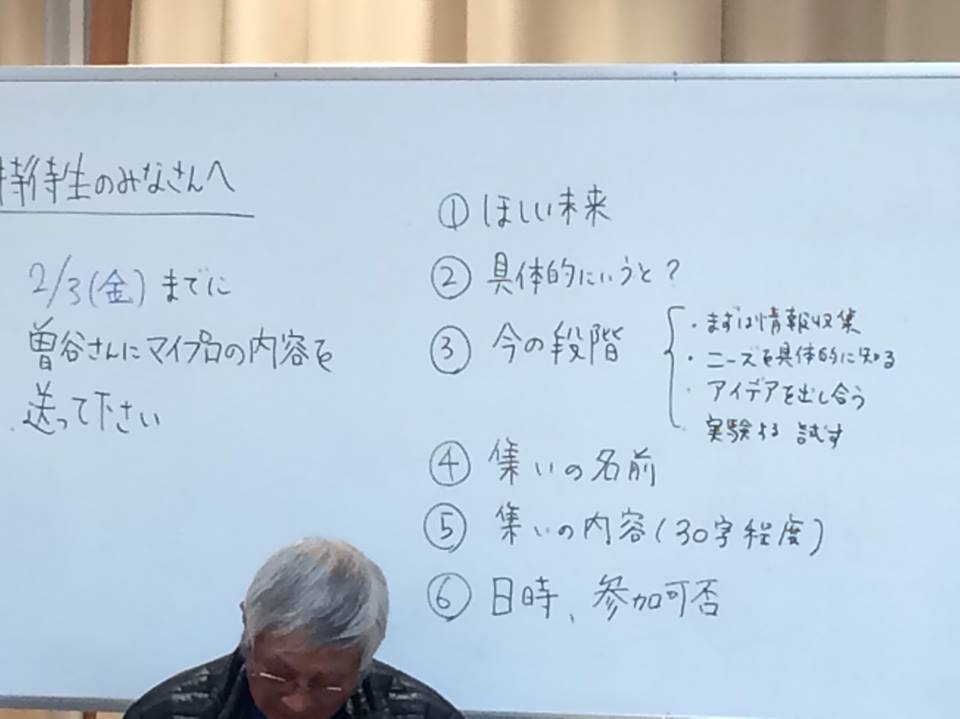 特待生のみなさんへ
2/3(金)までに
曽谷さんにマイプロの内容を
送って下さい
① ほしい未来
② 具体的にいうと?
③ 今の段階
・まずは情報収集
・ニーズを具体的に知る
・アイデアを出し合う
・実験する 試す
④ 集いの名前
⑤ 集いの内容(30字程度)
⑥ 日時、参加可否